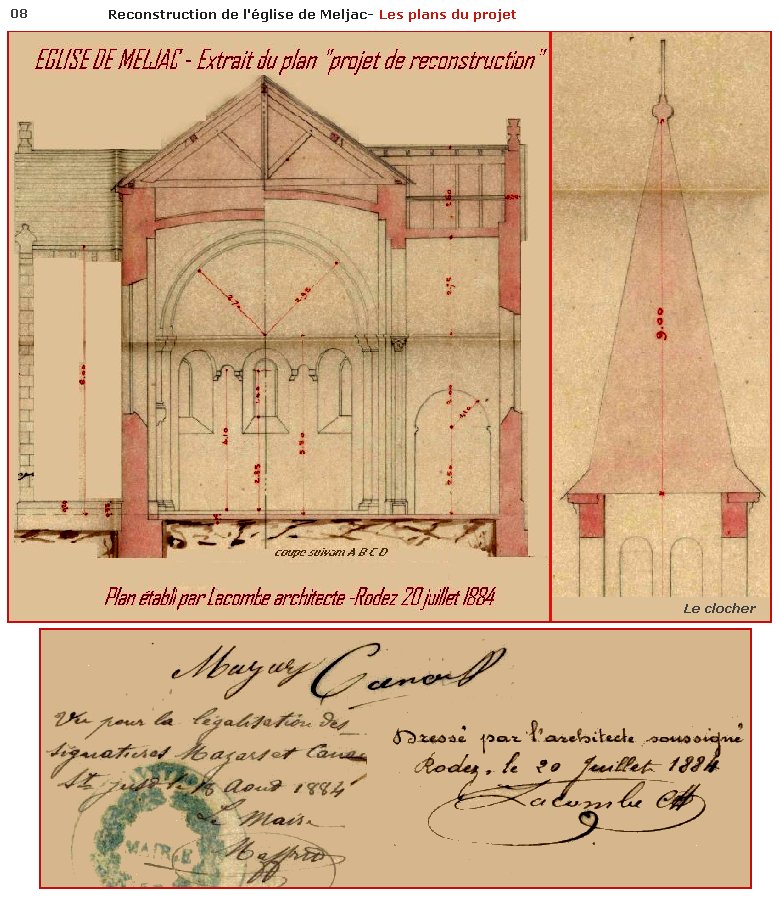 08 Reconstruction de l'église de Meljac- Les plans du projet
EGLISE DE MELJAC - Extrait du plan "projet de reconstruction"
9.00
coupe suivant A B C D
Plan établi par Lacombe architecte -Rodez 20 juillet 1884
Le clocher
Mazars
Vu pour la légalisation des
signatures Mazars et
St Just le Aout 1884
Le Maire
MAIRIE
Dressé par l'architecte soussigné
Rodez, le 20 Juillet 1884
Lacombe